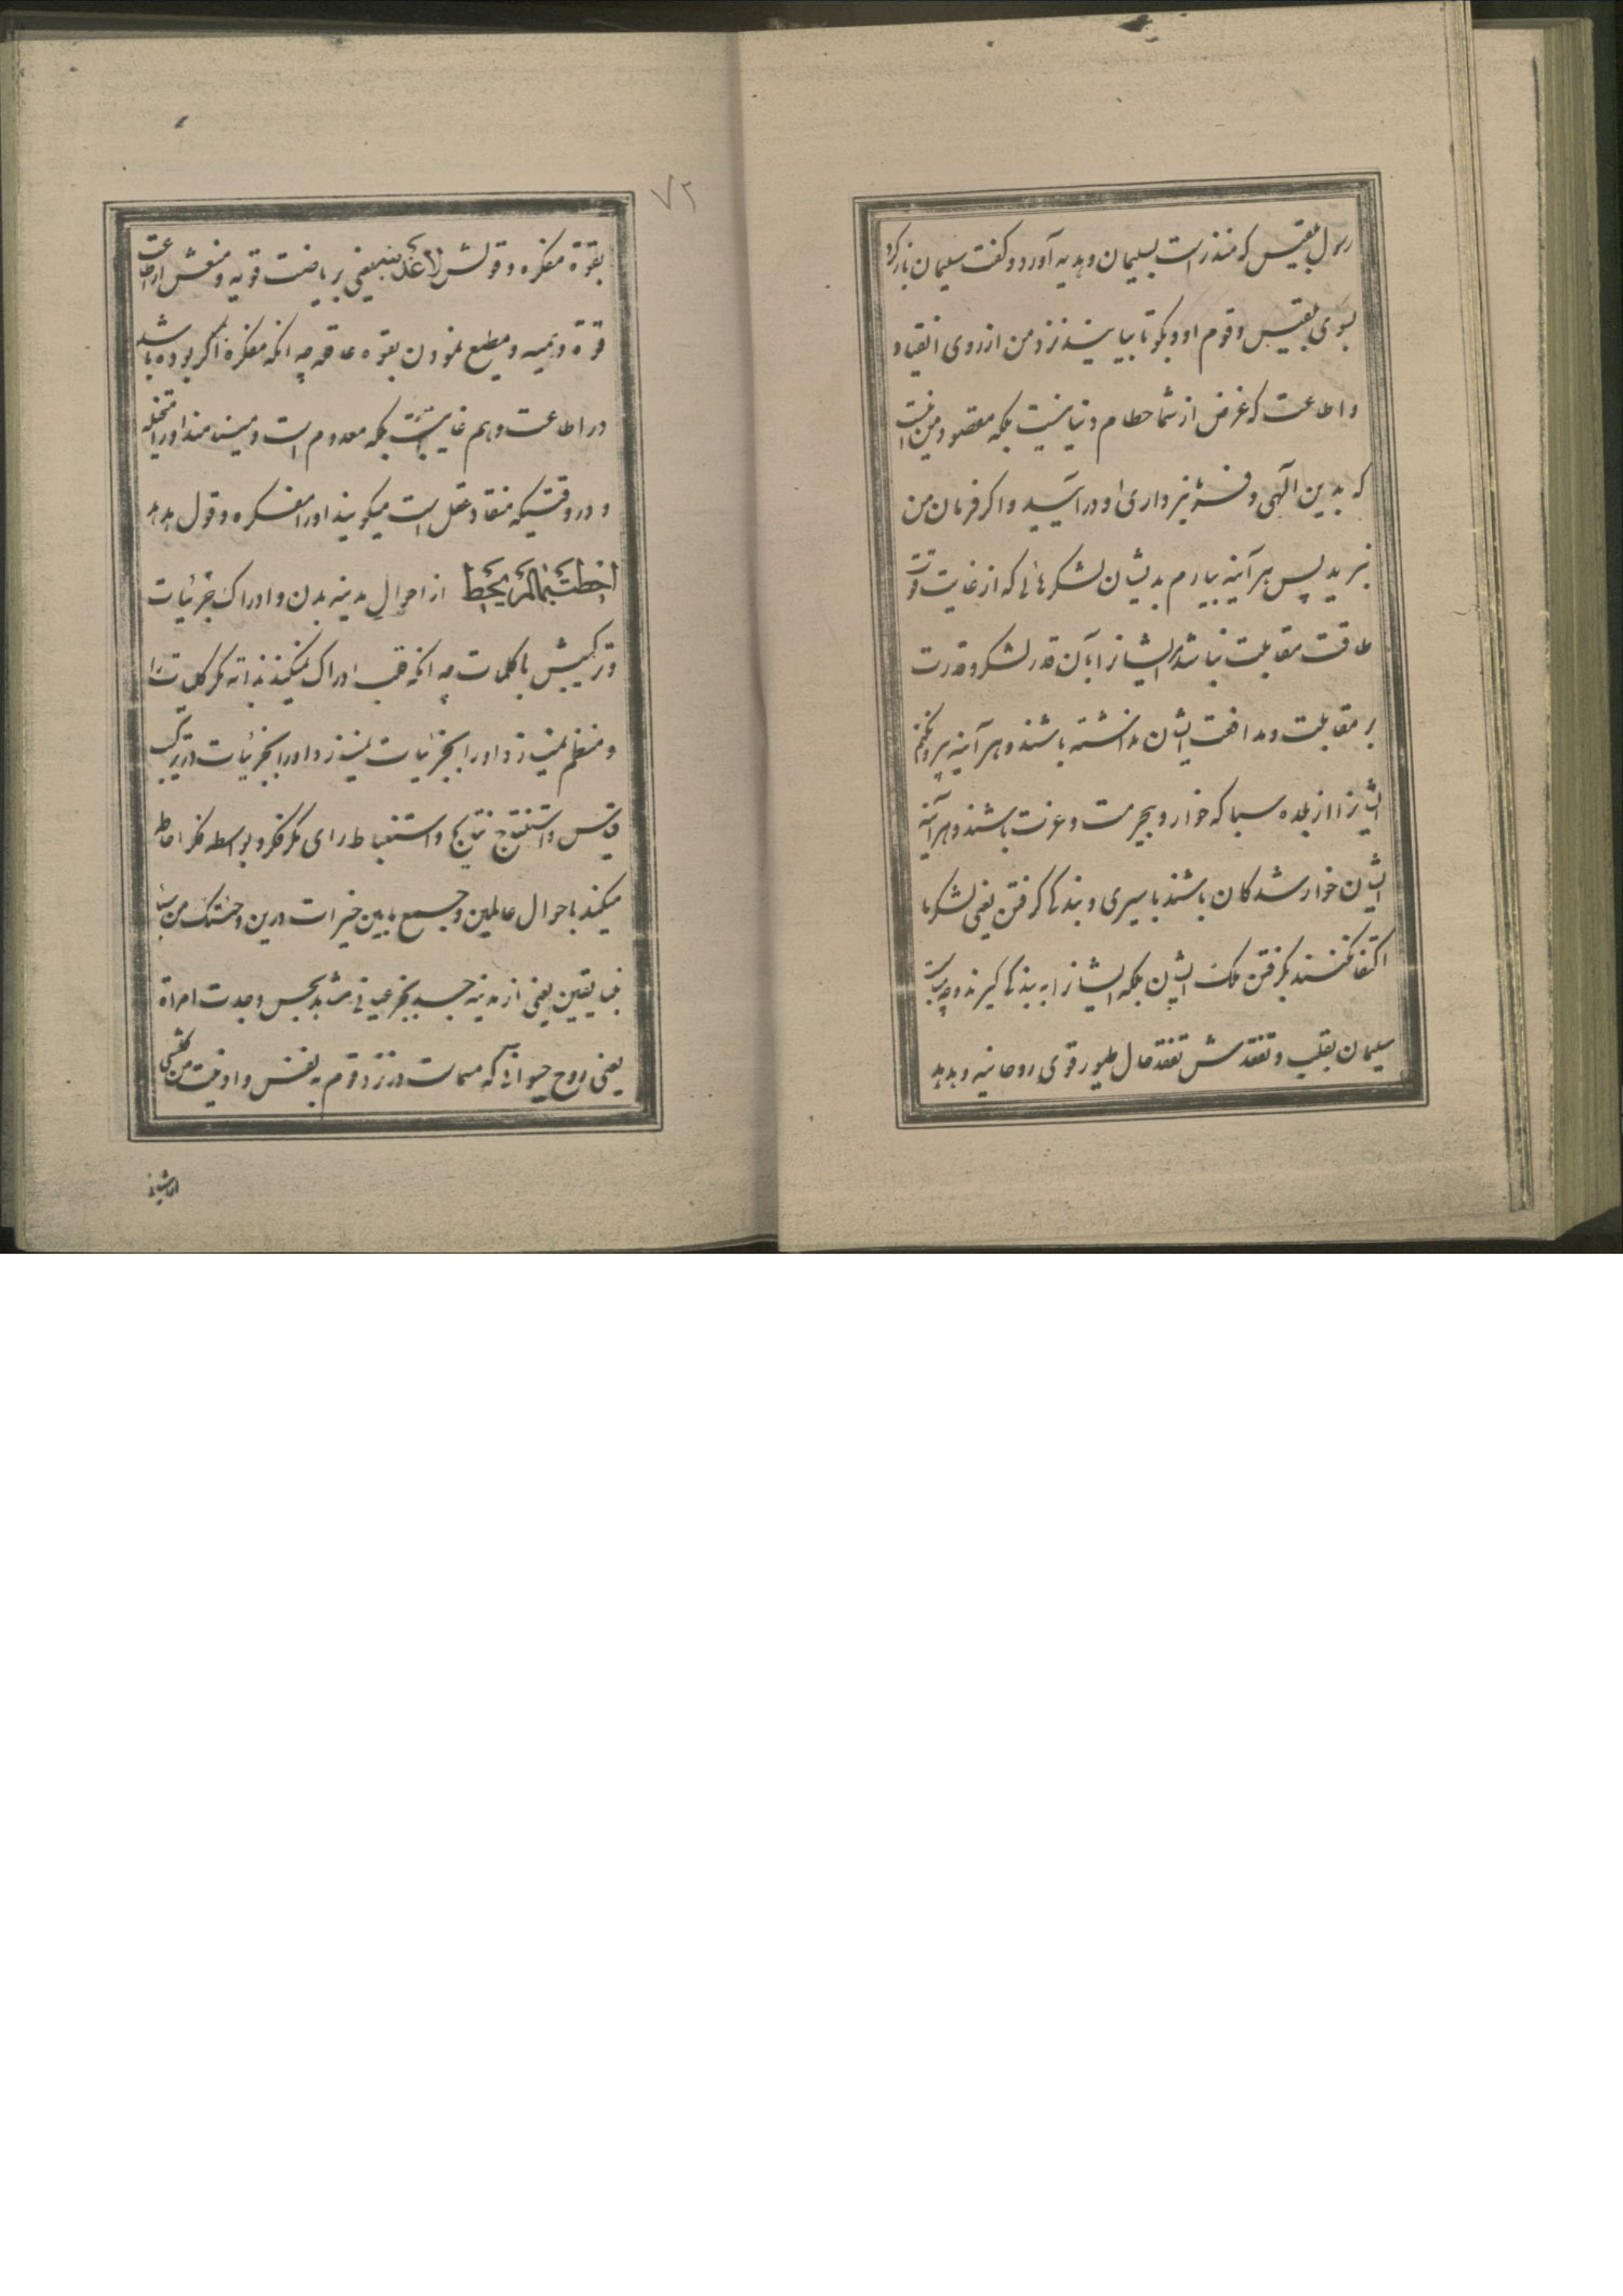 رسول بلقیس که منذر است بسلیمان و هدیه آورد و گفت سلیمان باز کرد
بسوی بلقیس و قوم او و بکو تا بیایند نزد من از روی انقیاد
و اطاعت که غرض از شما حطام دنیا نیست بلکه مقصود من اینست
که بدین الهی و فرمانبرداری او درآیید و اکر فرمان من
نبرید پس هر آینه بیارم بدیشان لشکرهائی که از غایت قوت
طاقت مقابلت نباشد ایشانرا بآن قدر لشکر و قدرت
بر مقابلت و مدافعت ایشان نداشته باشند و هر آینه بیرون کنیم
ایشانرا از بلده سبا که خوار و بیحرمت و عزت باشند و هر آینه
ایشان خوار شدکان باشند باسیری و بندکی کرفتن یعنی لشکرها
اکتفا نکنند بکرفتن ملک ایشان بلکه ایشانرا به بندکی کیرند و
سلیمان بقلب و تفقدش تفقد حال طیور قوی روحانیه و هدهد
۷۲
بقوة مفکره و قولش لاعذبنه یعنی بریاضت قویه و منعش از اطاعت
قوة وهمیه و مطیع نمودن بقوه عاقله چه انکه مفکره اکر بوده باشد
در اطاعت وهم غایبست بلکه معدوم است و مینامند او را متخیله
و در وقتیکه منقاد عقل است میکویند او را مفکره و قول هدهد
احطت بما لم تحط از احوال مدینه بدن و ادراک جزئیات
و ترکیبش با کلیات چه انکه قلب ادراک نمیکند بذاته مکر کلیات را
و منظم نمیسازد او را بجزئیات در ترکیب
قیاس و استنتاج نتایج و استنباط رای مکر فکر و بواسطه فکر احاطه
میکند باحوال عالمین و جمع مابین خیرات دارین و جئتک من سبا
بنبا یقین یعنی از مدینه جسد بخبر عیانی مشاهد بحس وجدت امراة
یعنی روح حیوانی که مسمات در نزد قوم به نفس و اوتیت من کل شیء